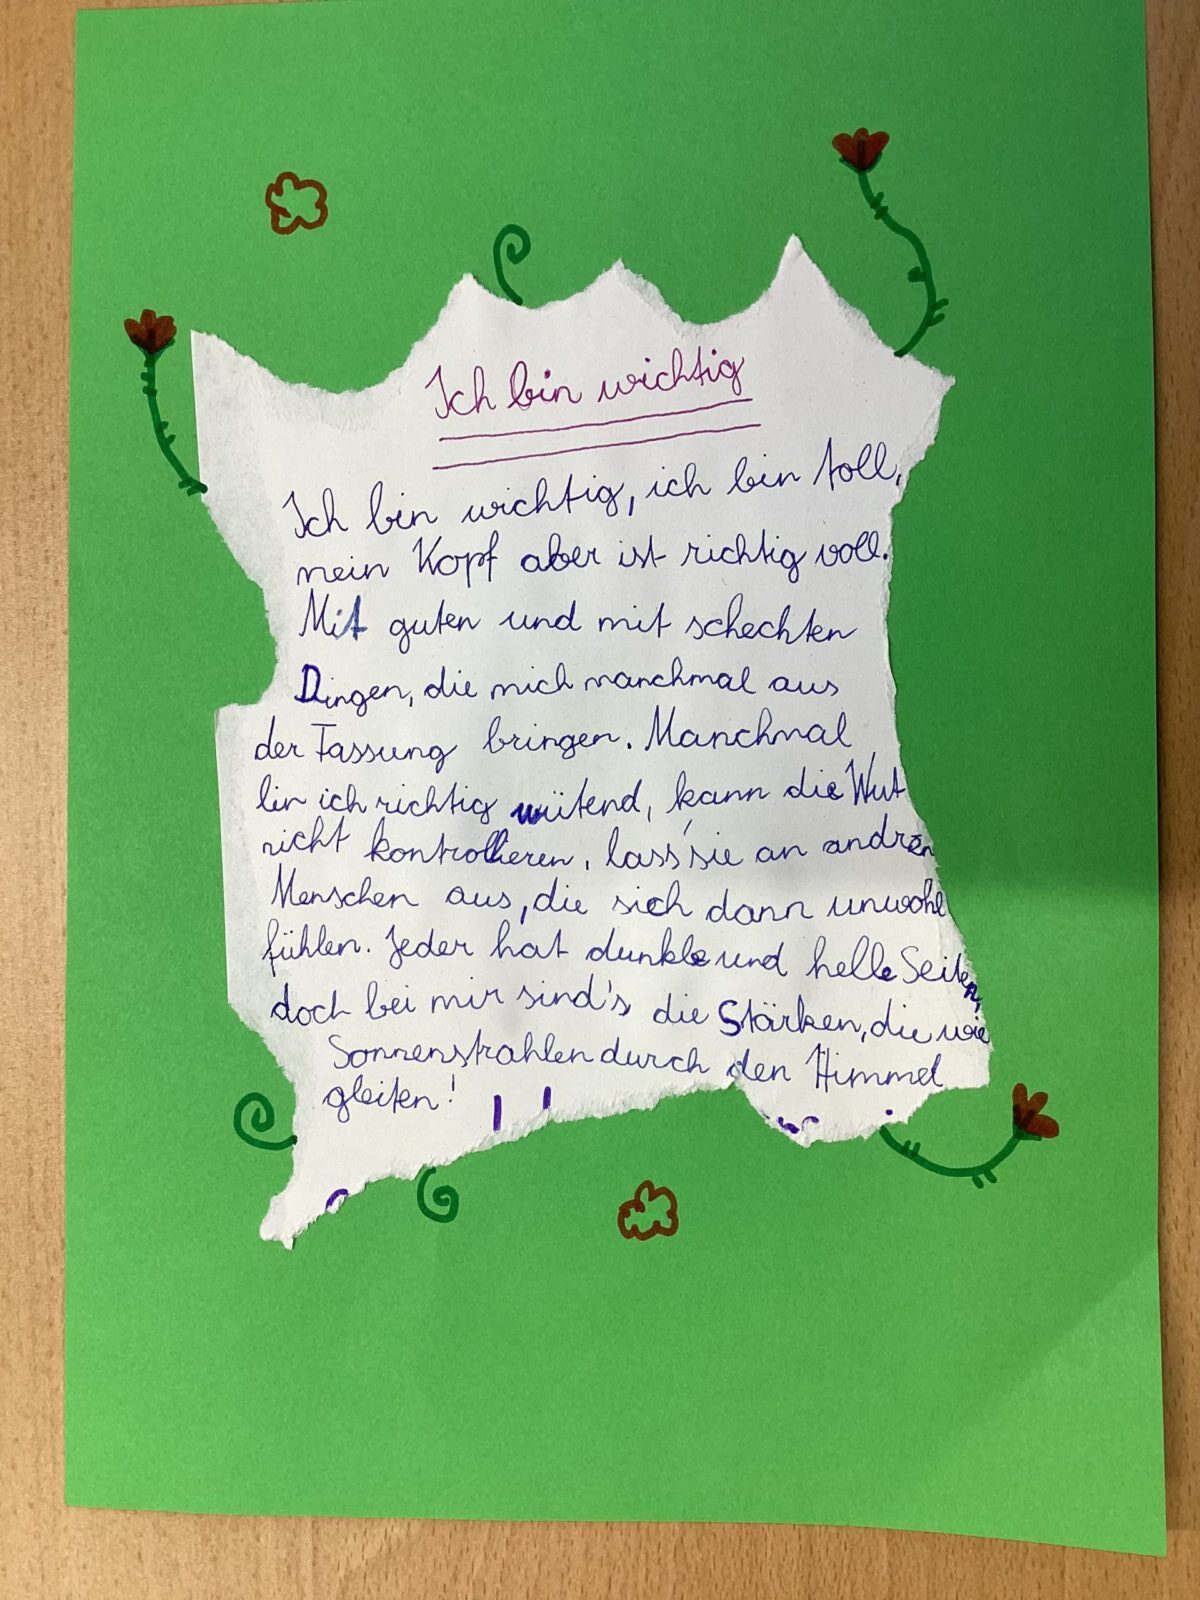 Ich bin wichtig
Ich bin wichtig, ich bin toll,
mein Kopf aber ist richtig voll.
Mit guten und mit schechten
Dingen, die mich manchmal aus
der Fassung bringen. Manchmal
bin ich richtig wütend, kann die Wut
nicht kontrollieren, lass' sie an andren
Menschen aus, die sich dann unwohl
fühlen. Jeder hat dunkle und helle Seiten,
doch bei mir sind's die Stärken, die wie
Sonnenstrahlen durch den Himmel
gleiten!